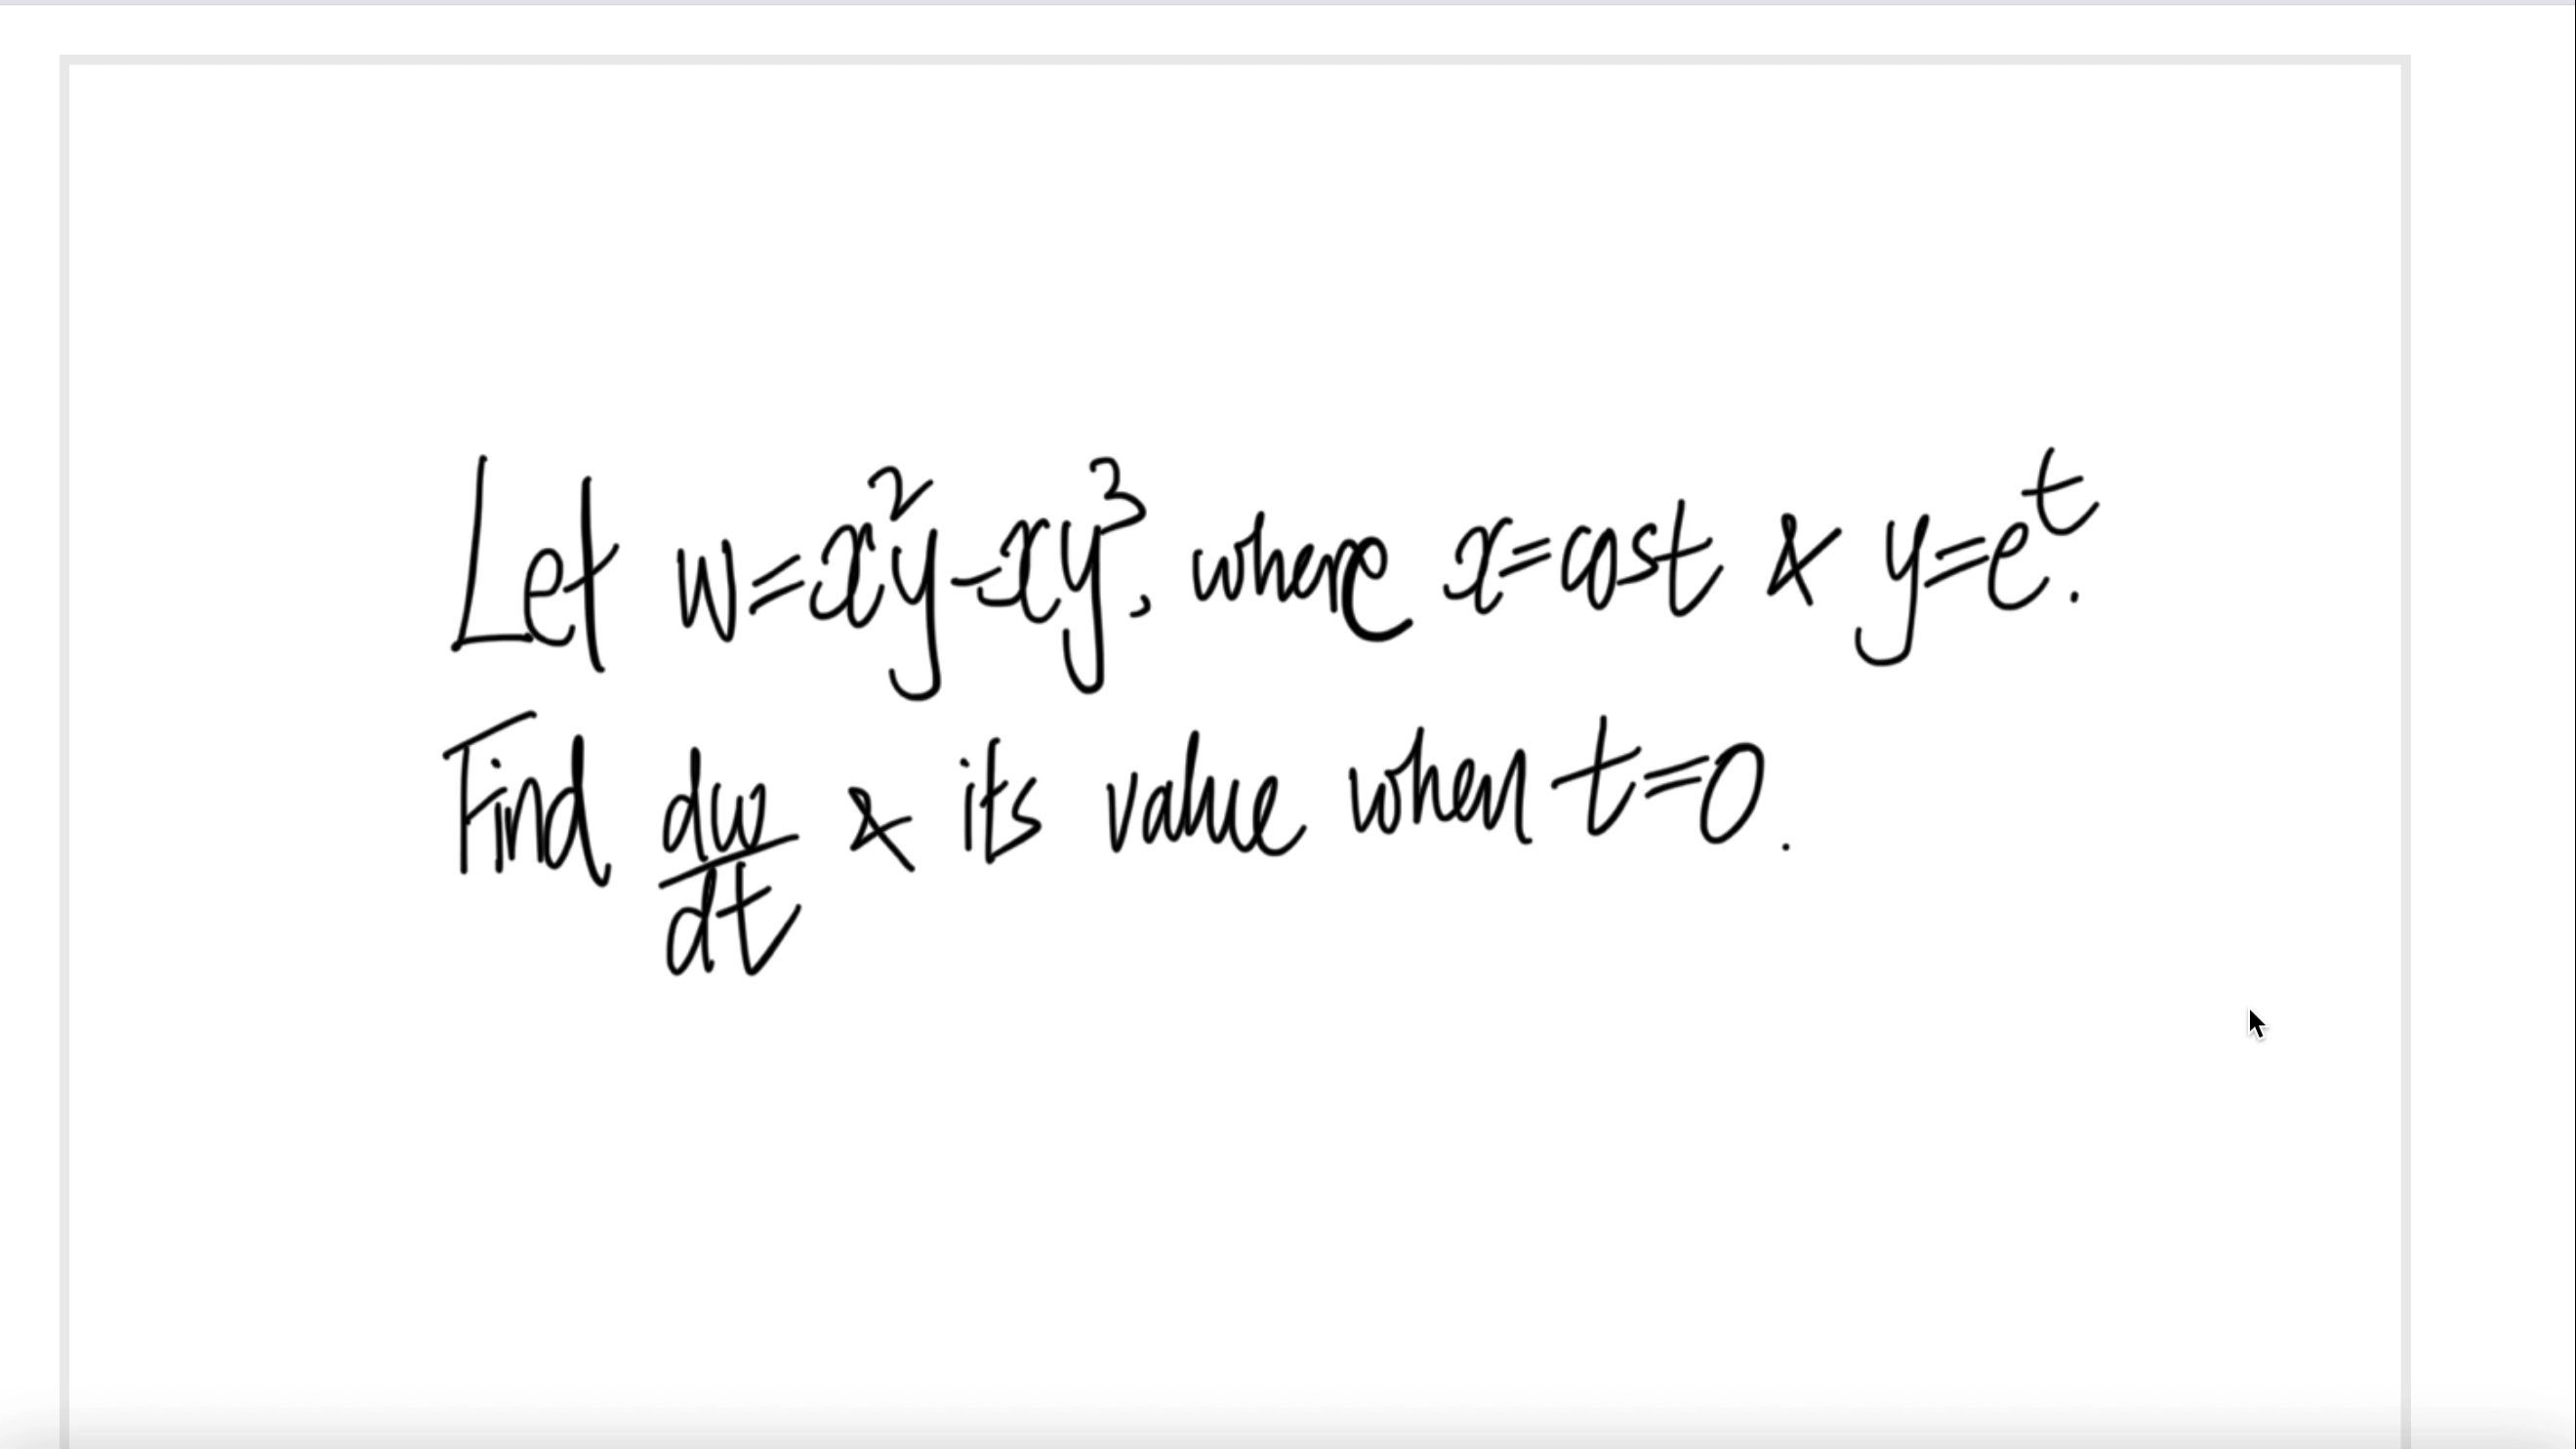 Let w=x²y-xy³, where x=cost & y=eᵗ.
Find dw/dt & its value when t=0.